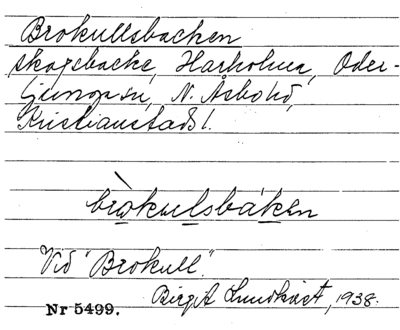 Brokullsbacken
skogsbacke, Harholma, Oder-
ljunga sn, N. Åsbo hd,
Kristianstads l.
bròkulsbáken
Vid "Brokull".
Birgit Lundkvist, 1938.
Nr 5499.